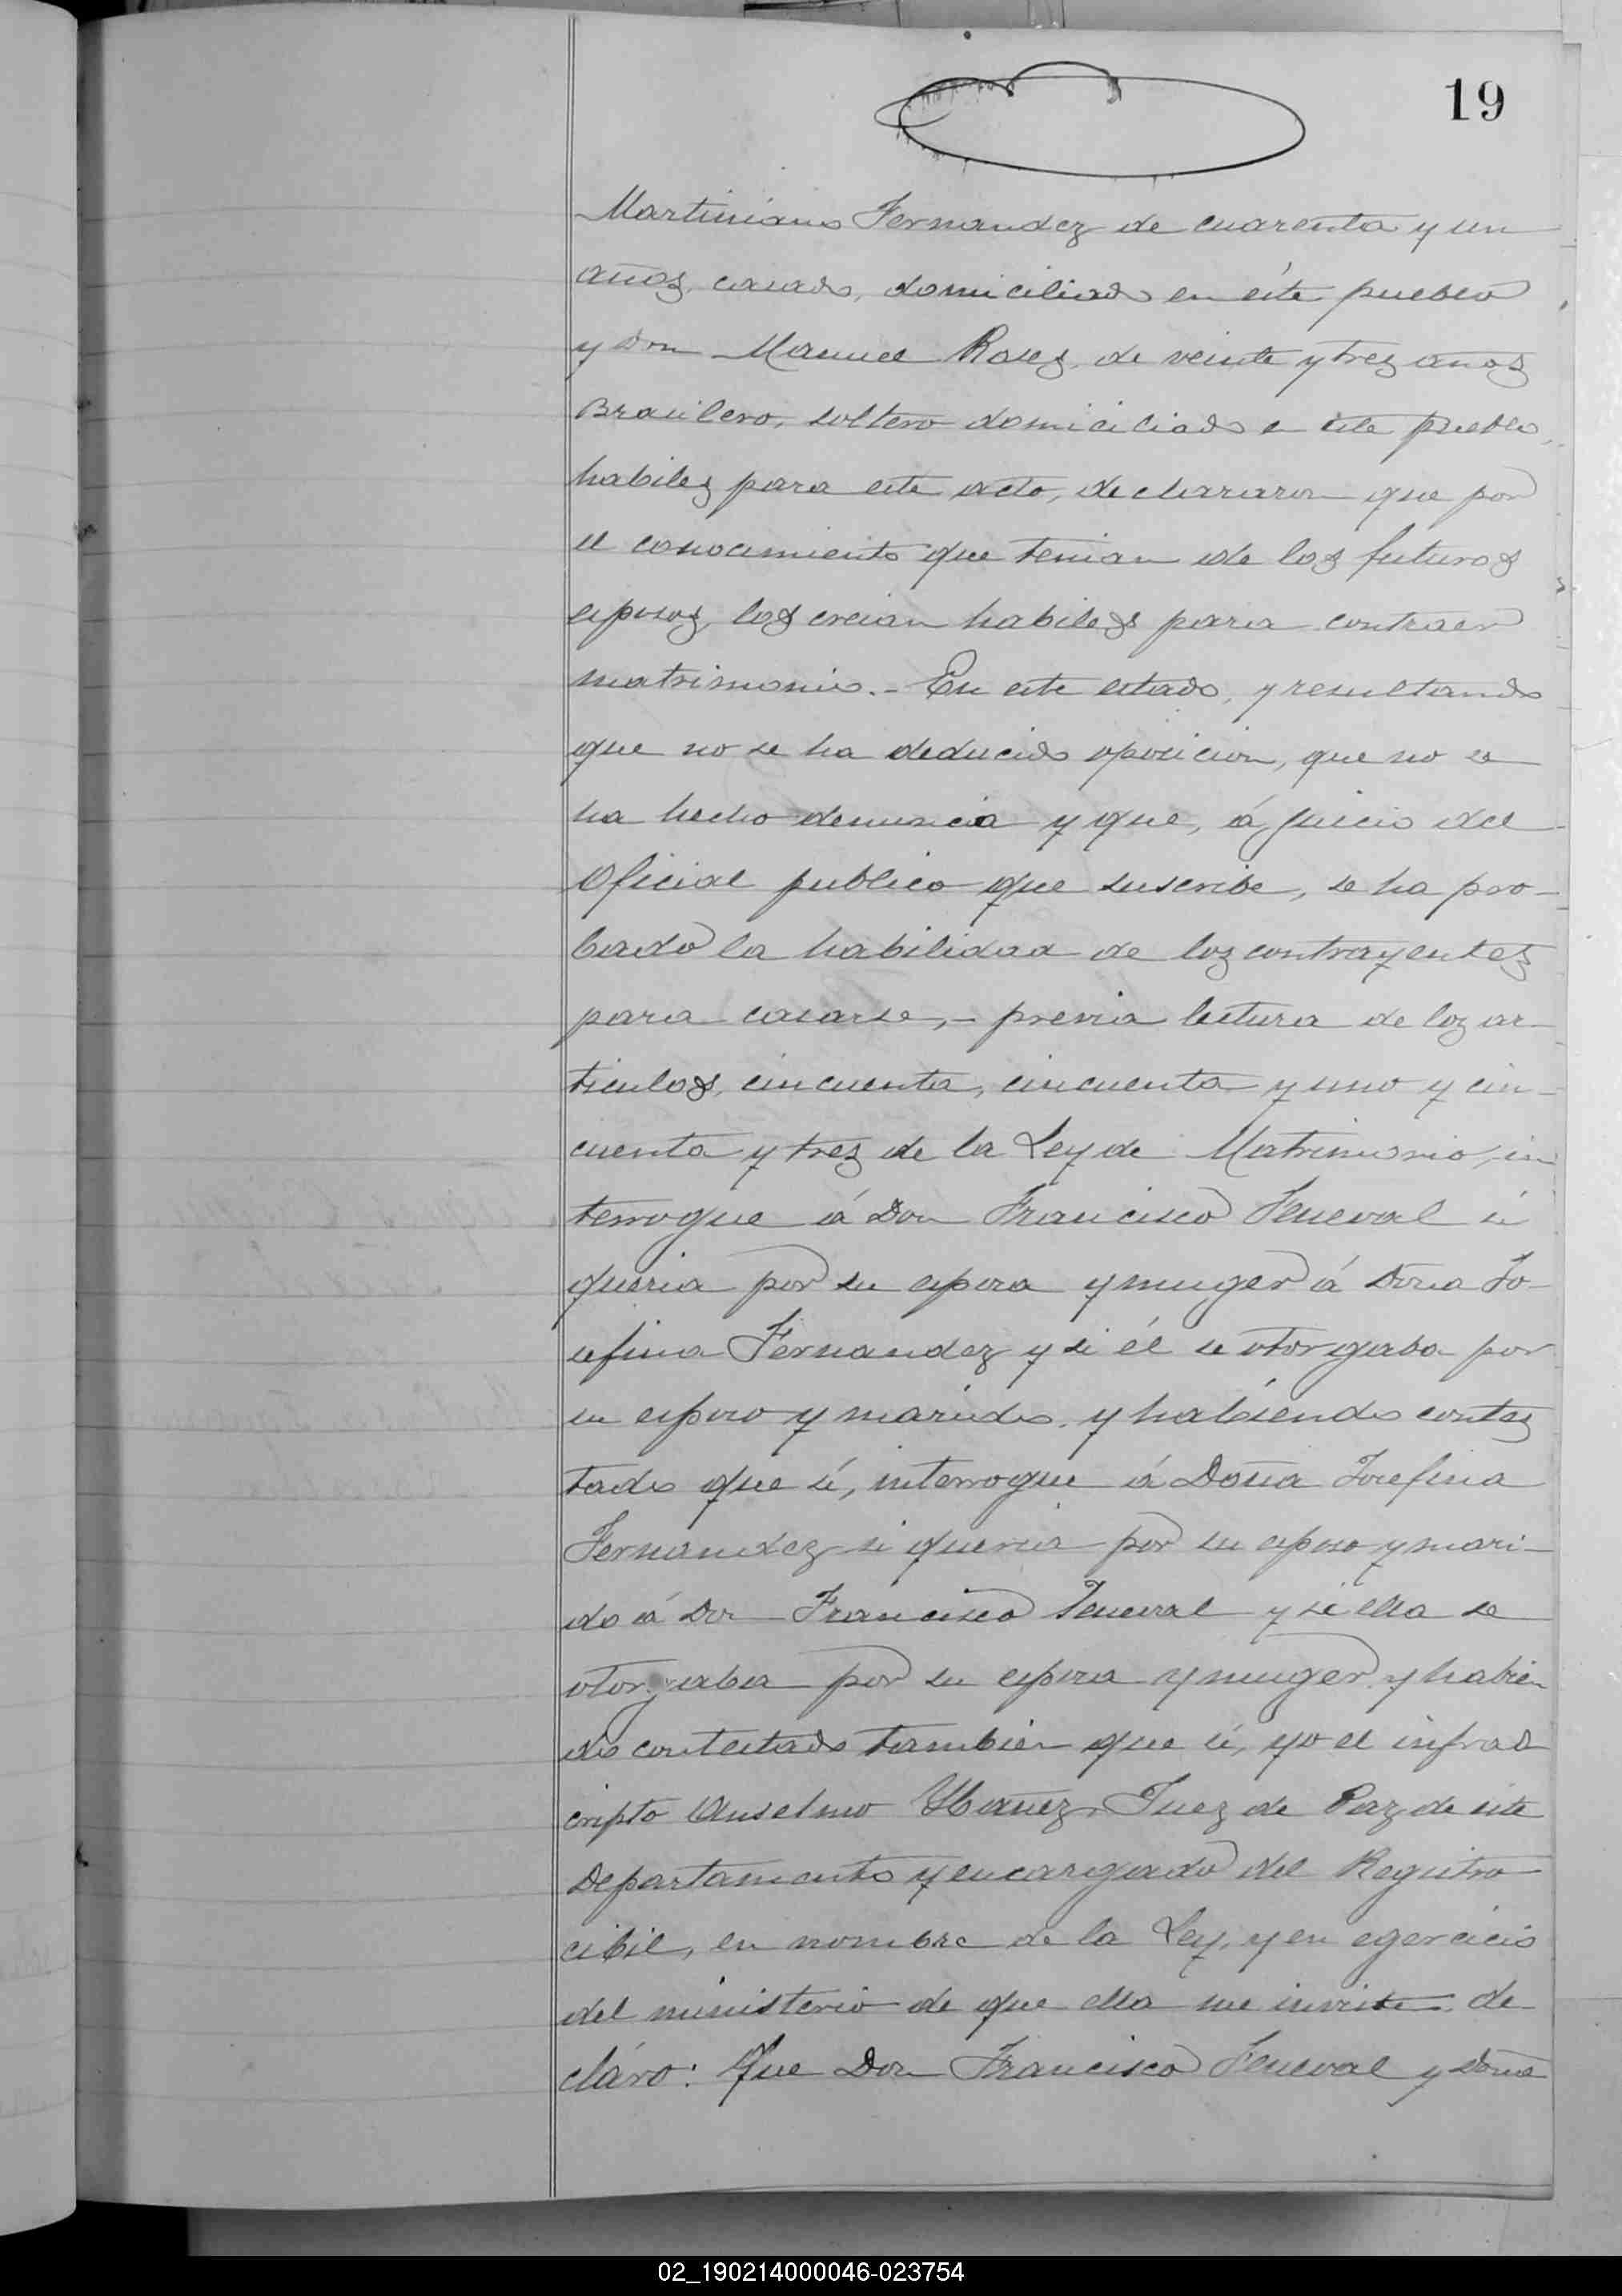 19
Martiniano Fernandez de cuarenta y un
años, casado, domiciliado en éste pueblo
y Don Manuel Roses, de veinte y tres años
Brasilero, soltero domiciliado e este pueblo,
habiles para este acto, declararon que por
el conocimiento que tenian de los futuros
esposos, los creian habiles para contraer
matrimonio.- En este estado, y resultando
que no se ha deducido oposicion, que no se
ha hecho denuncia y que, á juicio del
Oficial publico que suscribe, se ha pro-
bado la habilidad de los contrayentes
para casarse,- previa lectura de los ar-
ticulos, cincuenta, cincuenta y uno y cin-
cuenta y tres de la Ley de Matrimonio, in
terrogue á Don Francisco Feneval si
queria por su esposa y muger á Doña Jo-
sefina Fernandez y si él se otorgaba por
su esposo y marido, y habiendo contes
tado que sí, interrogue á Doña Josefina
Fernandez si queria por su esposo y mari-
do á Don Francisco Feneval y si ella se
otorgaba por su esposa y muger, y habien
do contestado tambien que sí, yo el infras
cripto Anselmo Ybañez, Juez de Paz de este
Departamento y encargado del Registro
cibil, en nombre de la Ley, y en egercicio
del ministerio de que ella me inviste, de
cláro: Que Don Francisco Feneval y Doña
02_190214000046-023754